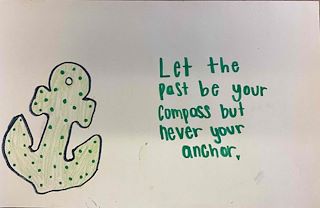 Let the
past be your
compass but
never your
anchor.